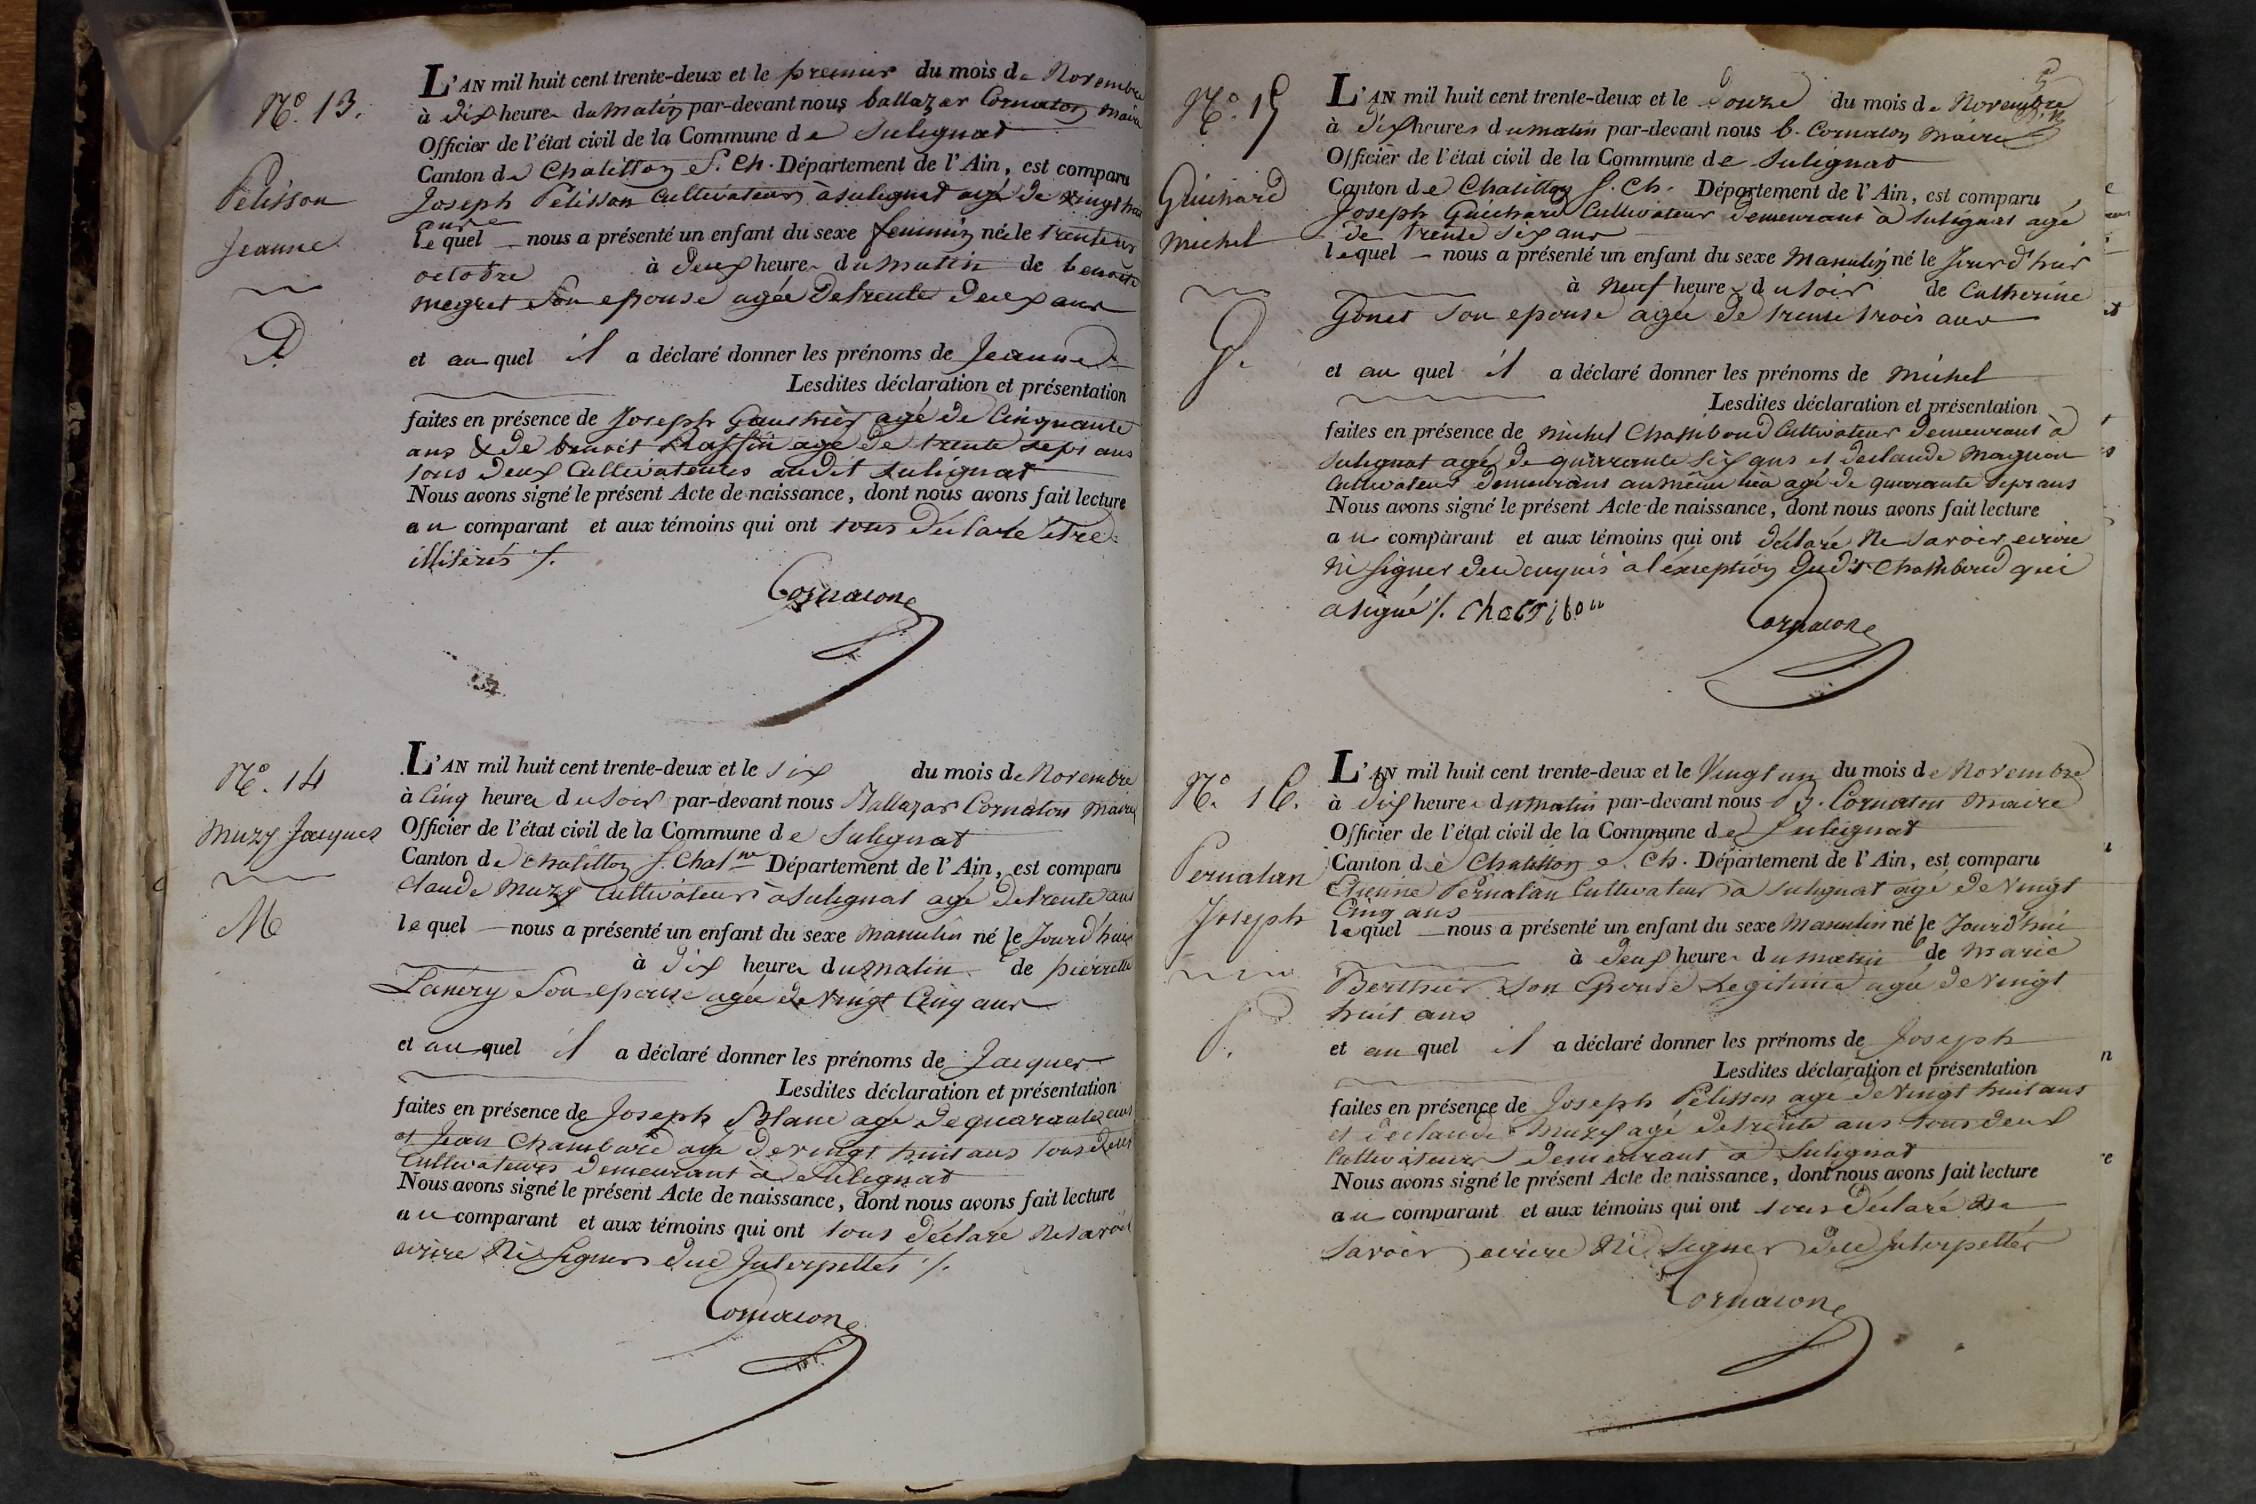 N.º 13.
Pelisson
Jeanne
L'AN mil huit cent trente-deux et le premier du mois de Novembre
à dix heures du matin par-devant nous baltazar Cornaton maire
Officier de l'état civil de la Commune de Sulignat
Canton de Chatillon S. Ch. Département de l'Ain, est comparu
Joseph Pelisson Cultivateur à Sulignat agé de vingt huit
ans
lequel nous a présenté un enfant du sexe feminin née le trente un
octobre à deux heures du matin de benoite
megret Son epouse agée de trente deux ans
et au quel il a déclaré donner les prénoms de Jeanne
Lesdites déclaration et présentation
faites en présence de Joseph Gauthier agé de Cinquante
ans & de benoit Raffin agé de trente sept ans
tous deux Cultivateurs audit Sulignat
Nous avons signé le présent Acte de naissance, dont nous avons fait lecture
au comparant et aux témoins qui ont tous déclaré être
illitérés ./.
Cornaton
N.º 14
Muzy Jacques
M
L'AN mil huit cent trente-deux et le six du mois de Novembre
à Cinq heures du Soir par-devant nous Baltazar Cornaton Maire
Officier de l'état civil de la Commune de Sulignat
Canton de Chatillon S. Chal.ne Département de l'Ain, est comparu
Claude Muzy Cultivateur à Sulignat agé de trente ans
lequel nous a présenté un enfant du sexe Masculin né le Jourd'hui
à dix heures du matin de pierrette
Son epouse agée de Vingt Cinq ans
et au quel il a déclaré donner les prénoms de Jacques
Lesdites déclaration et présentation
faites en présence de Joseph Blanc agé de quarante ans
et Jean Chambard agé de vingt huit ans tous deux
Cultivateurs demeurant à Sulignat
Nous avons signé le présent Acte de naissance, dont nous avons fait lecture
au comparant et aux témoins qui ont tous déclaré ne savoir
ecrire Ni Signer due Interpellés ./.
Cornaton
N.º 15
Guichard
Michel
G.
L'AN mil huit cent trente-deux et le douze du mois de Novembre
à dix heures du matin par-devant nous b. Cornaton Maire
Officier de l'état civil de la Commune de Sulignat
Canton de Chatillon S. Ch. Département de l'Ain, est comparu
Joseph Guichard Cultivateur demeurant à Sulignat agé
de trente six ans
lequel nous a présenté un enfant du sexe Masculin né le Jourd'hui
à Neuf heures du Soir de Catherine
Gonet Son epouse agée de trente trois ans
et au quel il a déclaré donner les prénoms de Michel
Lesdites déclaration et présentation
faites en présence de Michel Chamboud Cultivateur demeurant à
Sulignat agé de quarante six ans et de claude Magnon
Cultivateur demeurant au même lieu agé de quarante sept ans
Nous avons signé le présent Acte de naissance, dont nous avons fait lecture
au comparant et aux témoins qui ont déclaré Ne Savoir ecrire
Ni Signer de ce enquis à l'exception dudit Chamboud qui
a signé ./.
Cornaton
N.º 16.
Pernatan
Joseph
P.
L'AN mil huit cent trente-deux et le Vingt un du mois de Novembre
à dix heures du matin par-devant nous B. Cornaton Maire
Officier de l'état civil de la Commune de Sulignat
Canton de Chatillon S. Ch. Département de l'Ain, est comparu
Etienne Pernatan Cultivateur à Sulignat agé de Vingt
Cinq ans
lequel nous a présenté un enfant du sexe Masculin né le Jourd'hui
à deux heures du matin de Marie
Berthier Son Epouse Legitime agée de Vingt
huit ans
et au quel il a déclaré donner les prénoms de Joseph
Lesdites déclaration et présentation
faites en présence de Joseph Pelisson agé de Vingt huit ans
et de claude Muzy agé de trente ans tous deux
Cultivateurs demeurant à Sulignat
Nous avons signé le présent Acte de naissance, dont nous avons fait lecture
au comparant et aux témoins qui ont tous déclaré Ne
Savoir ecrire Ni Signer de ce Interpellés
Cornaton